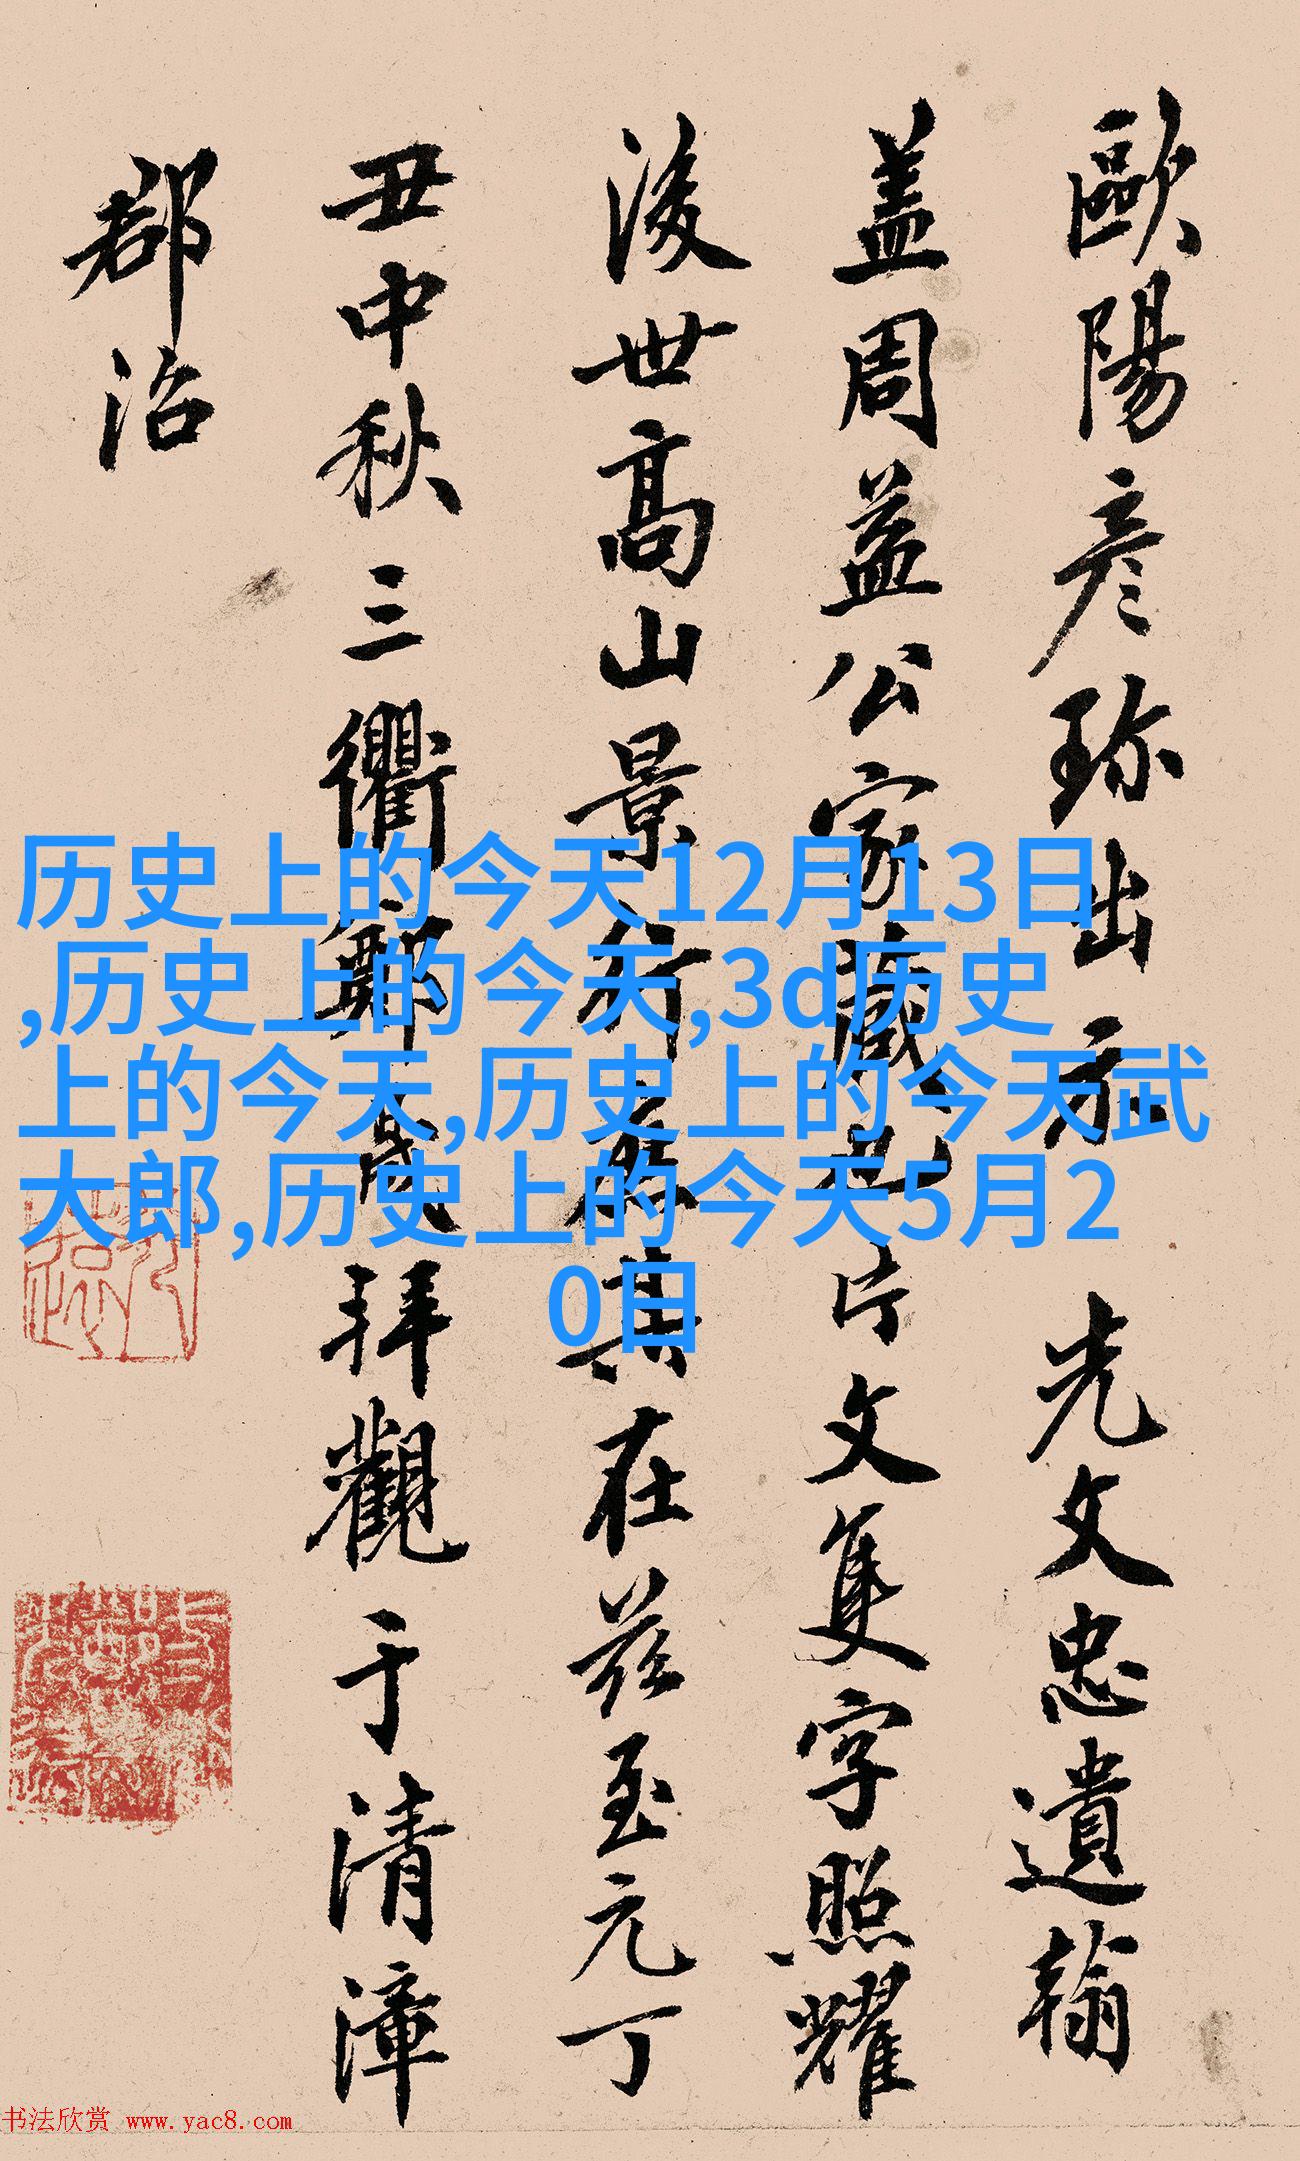 歐陽彦珎出示 光文忠遺翰
盖周益公家藏也片文隻字照耀
後世高山景行君其在兹至元丁
丑中秋三衢鄭 拜觀于清漳
郡治
历史上的今天12月13日
,历史上的今天,3d历史
上的今天,历史上的今天武
大郎,历史上的今天5月2
0日
书法欣赏 www.yac8.com